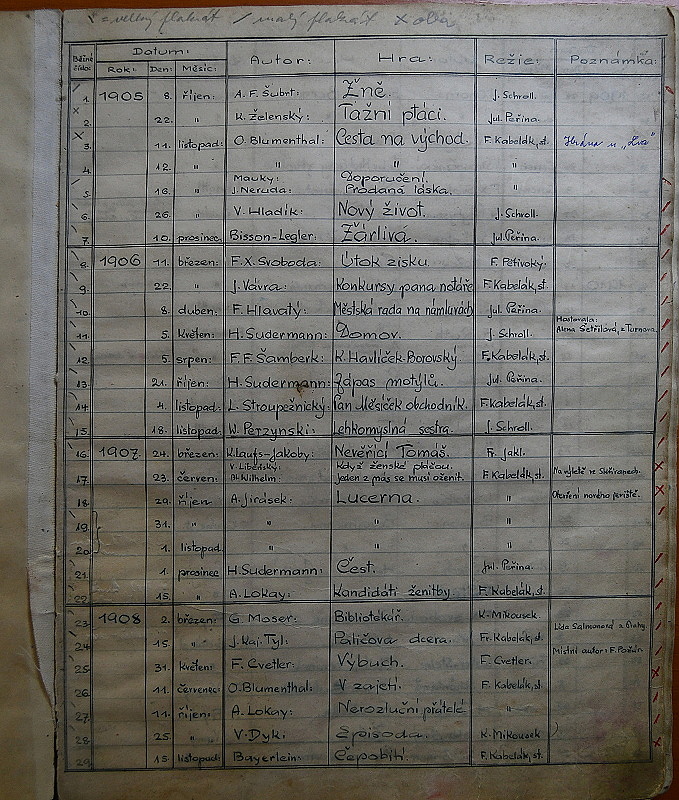 = velký plakát / malý plakát x oba
Běžné číslo: Datum: Autor: Hra: Režie: Poznámka:
Rok: Den: Měsíc:
1. 1905 8. říjen: A.F. Šubrt: Žně. J. Schroll.
2. 22. " K. Želenský: Tažní ptáci. Jul. Peřina.
3. 11. listopad: O. Blumenthal: Cesta na východ. F. Kabelák, st. Hrána u „Lva"
4. 12. " " "
Mauky: Doporučení.
5. 16. " J. Neruda: Prodaná láska. Jul. Peřina.
6. 26. " V. Hladík: Nový život. J. Schroll.
7. 10. prosinec: Bisson-Legler: Žárlivá. Jul. Peřina.
8. 1906 11. březen: F.X. Svoboda: Útok zisku. F. Petivoký:
9. 22. " J. Vávra: Konkursy pana notáře F. Kabelák, st.
10. 8. duben: F. Hlavatý: Městská rada na námluvách Jul. Peřina.
Hostovala:
11. 5. květen: H. Sudermann: Domov. J. Schroll. Alena Šetřilová, z Turnova.
12. 5. srpen: F.F. Šamberk: K. Havlíček-Borovský F. Kabelák, st.
13. 21. říjen: H. Sudermann: Zápas motýlů. Jul. Peřina.
14. 4. listopad: L. Stroupežnický: Pan Měsíček obchodník. F. Kabelák, st.
15. 18. listopad: W. Perzynski: Lehkomyslná sestra. J. Schroll.
16. 1907 24. březen: K. Laufs-Jakoby: Nevěřící Tomáš. Fr. Jakl.
V. Libětský: Když ženské pláčou.
17. 23. červen: Wilhelm: Jeden z nás se musí oženit. F. Kabelák, st. Na výletě ve
18. 29. říjen A. Jirásek: Lucerna. " Otevření nového jeviště.
19. 31. " " " "
20. 1. listopad " " "
21. 1. prosinec H. Sudermann: Čest. Jul. Peřina.
22. 15. " A. Lokay: Kandidáti ženitby. F. Kabelák, st.
23. 1908 2. březen: G. Moser: Bibliotekář. K. Mikousek. Lída z Prahy.
24. 15. " J. Kaj. Tyl: Paličova dcera. Fr. Kabelák, st.
Místní autor: F.
25. 31. květen: F. Cvetler: Výbuch. F. Cvetler.
26. 11. červenec: O. Blumenthal: V zajetí. F. Kabelák, st.
27. 11. říjen: A. Lokay: Nerozluční přátelé "
28. 25. " V. Dyk: Episoda. K. Mikousek
29. 15. listopad: Bayerlein: Čepobití. F. Kabelák, st.